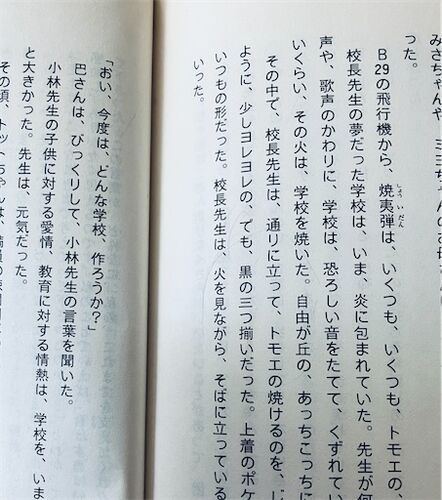 みさちゃんや、ミヨちゃんのお母さ
った。
B29の飛行機から、焼夷弾は、いくつも、いくつも、トモエの
しょういだん
校長先生の夢だった学校は、いま、炎に包まれていた。先生が何
声や、歌声のかわりに、学校は、恐ろしい音をたてて、くずれてい
いくらい、その火は、学校を焼いた。自由が丘の、あっちこっちに
その中で、校長先生は、通りに立って、トモエの焼けるのを、じ
ように、少しヨレヨレの、でも、黒の三つ揃いだった。上着のポケ
いつもの形だった。校長先生は、火を見ながら、そばに立っている
いった。
「おい、今度は、どんな学校、作ろうか？」
巴さんは、びっくりして、小林先生の言葉を聞いた。
小林先生の子供に対する愛情、教育に対する情熱は、学校を、いま
と大きかった。先生は、元気だった。
その頃、トットちゃんは、満員の